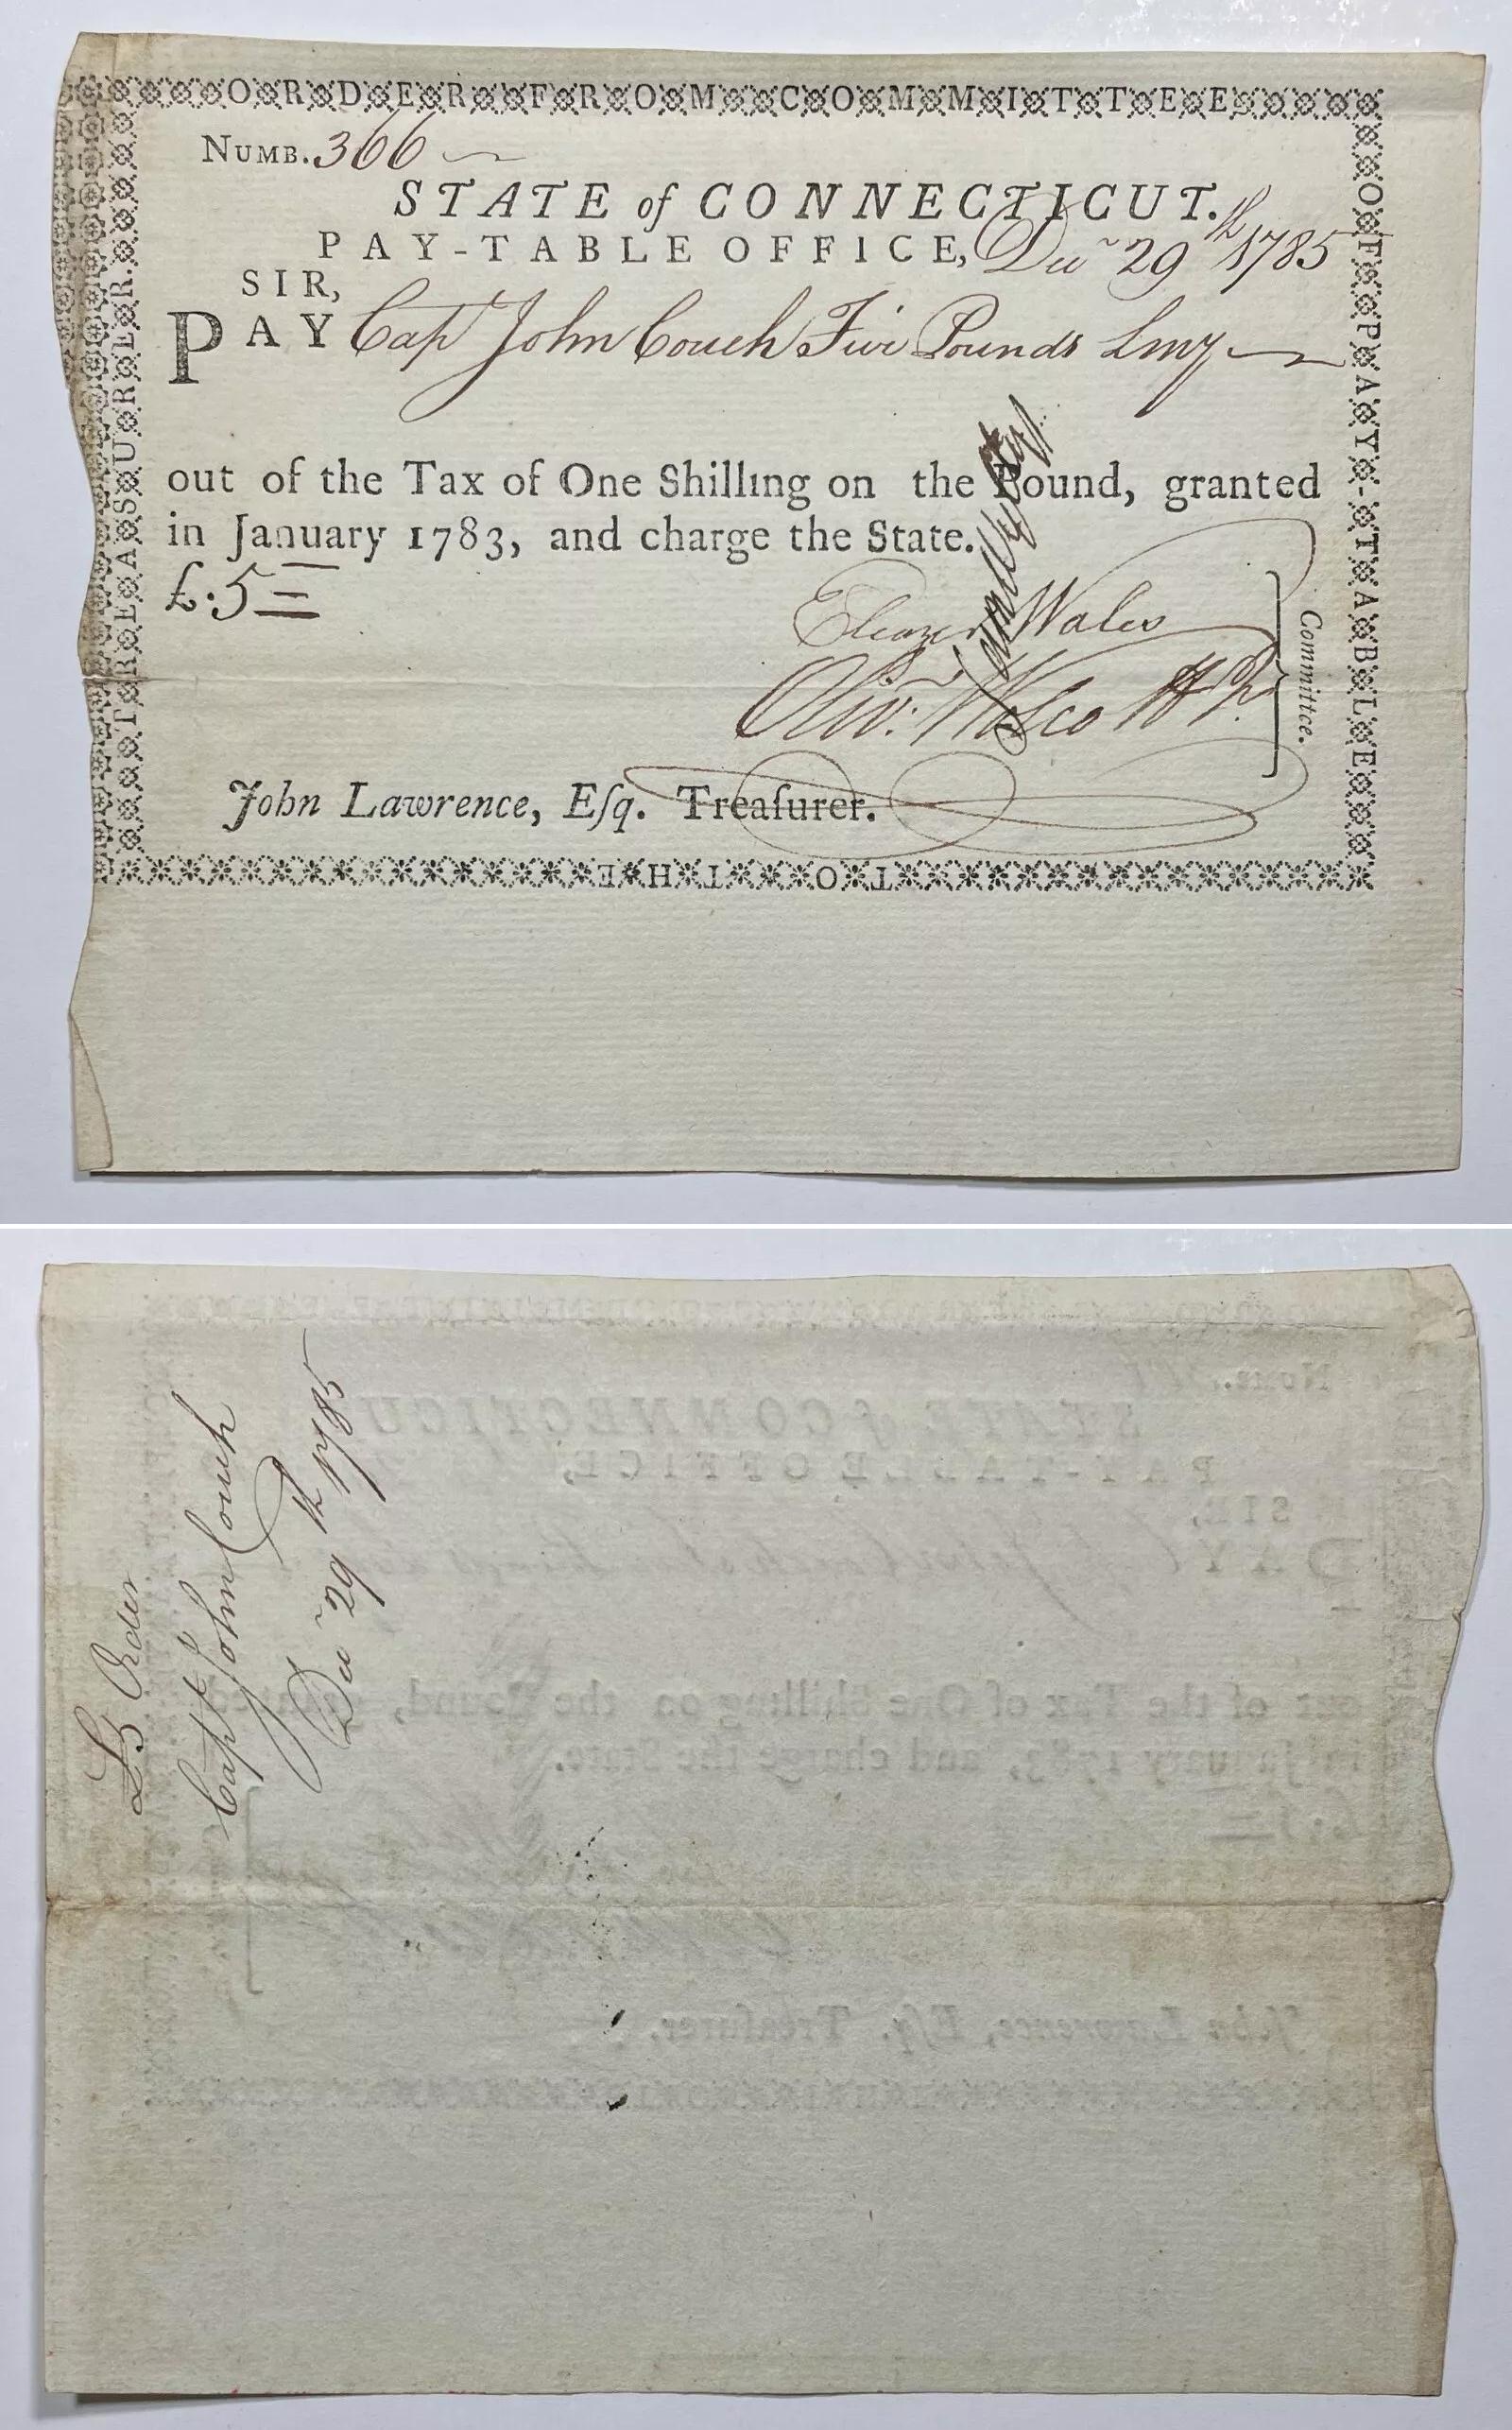 ORDER FROM COMMITTEE
OF PAY-TABLE
TO THE
TREASURER.
NUMB. 366
STATE of CONNECTICUT.
PAY-TABLE OFFICE, Decr 29th 1785
SIR,
PAY Capt John Couch Five Pounds Lmy
out of the Tax of One Shilling on the Pound, granted
in January 1783, and charge the State.
£.5=
Eleazer Wales
Olivr. Wolcott Jr.
Committee.
John Lawrence, Eſq. Treaſurer.
£5 Order
Capt John Couch
Decr 29th 1785